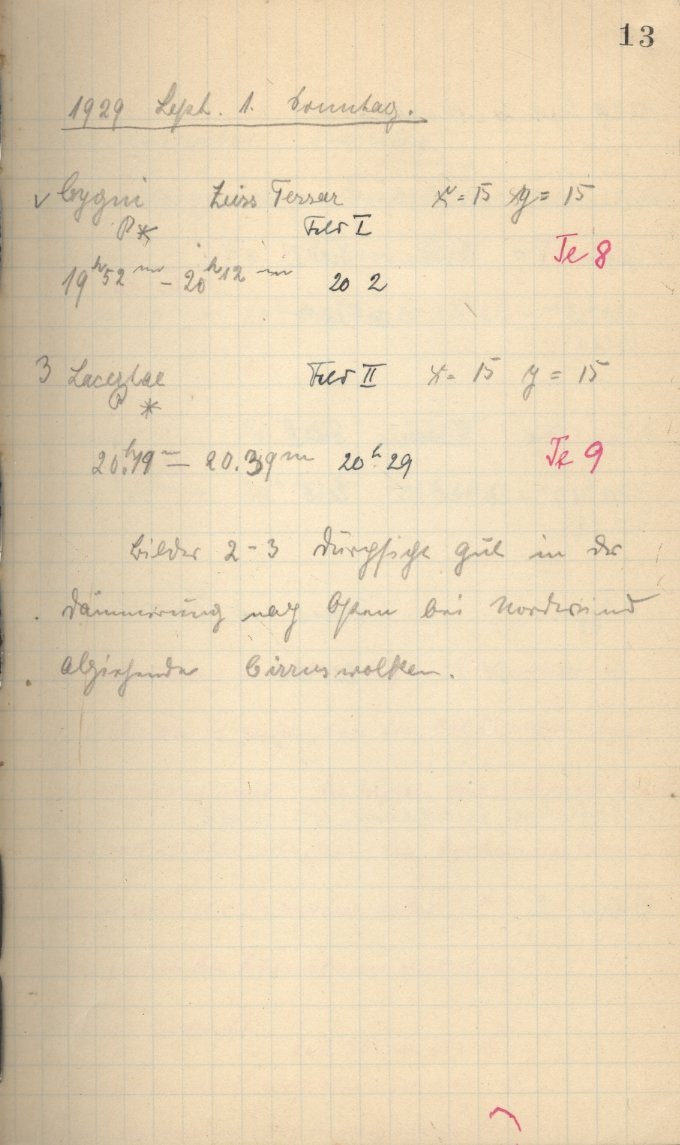 13
1929 Sept. 1. Sonntag.
ν Cygni Zeiss Tessar x = 15 y = 15
P * Feld I
Te 8
19h52m – 20h12m 20 2
3 Lacertae Feld II x = 15 y = 15
P *
20h19m – 20.39m 20h29 Te 9
Bilder 2-3 Durchsicht gut in der
Dämmerung nach Osten bei Nordwind
abziehende Cirruswolken.